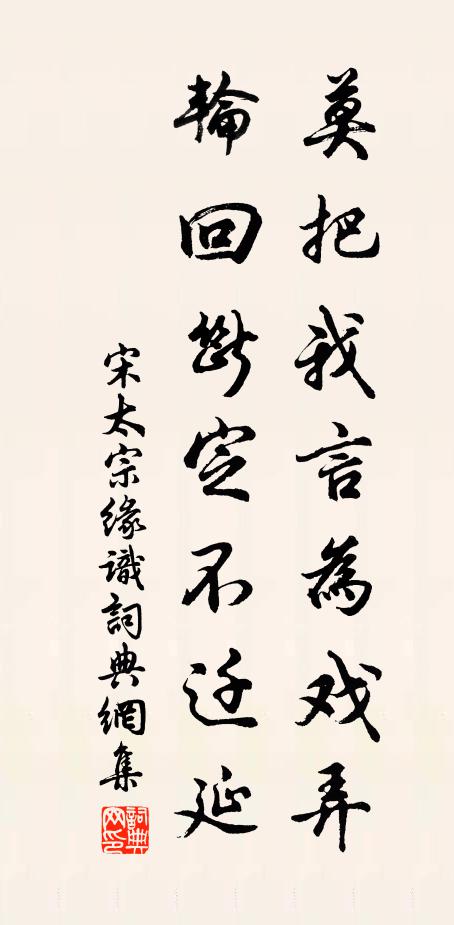 莫把我言為戏弄
輪回斷定不迁延
宋太宗緣識詞典網集
詞典网印